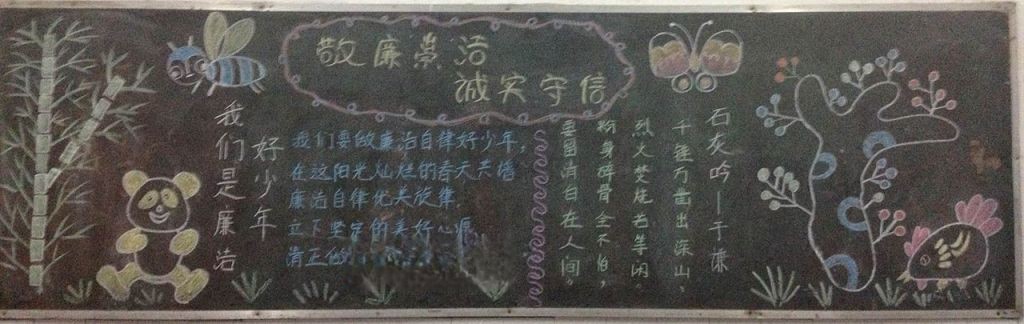 敬廉崇洁
诚实守信
我们是廉洁
好少年
我们要做廉洁自律好少年,
在这阳光灿烂的春天
廉洁自律优美旋律,
立下坚定的美好心愿,
清正做
石灰吟—于谦
千锤万凿出深山,
烈火焚烧若等闲。
粉身碎骨全不怕,
要留清白在人间。